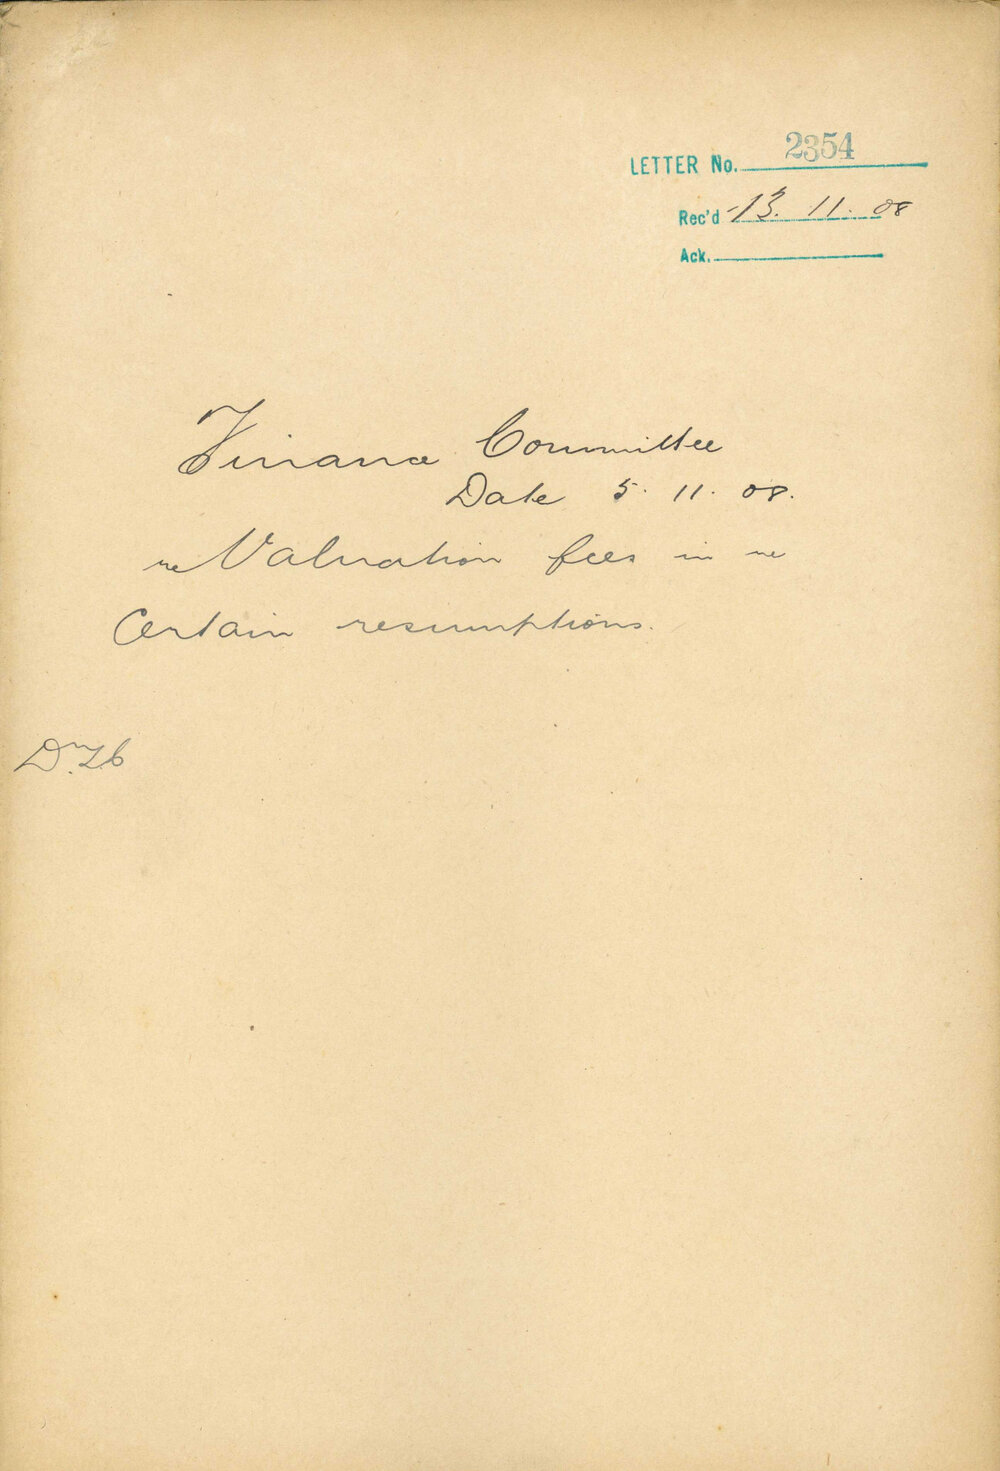 LETTER No. 2354
Rec'd 13. 11. 08
Ack.
Finance Committee
Date 5. 11. 08.
re Valuation fees in re
Certain resumptions.